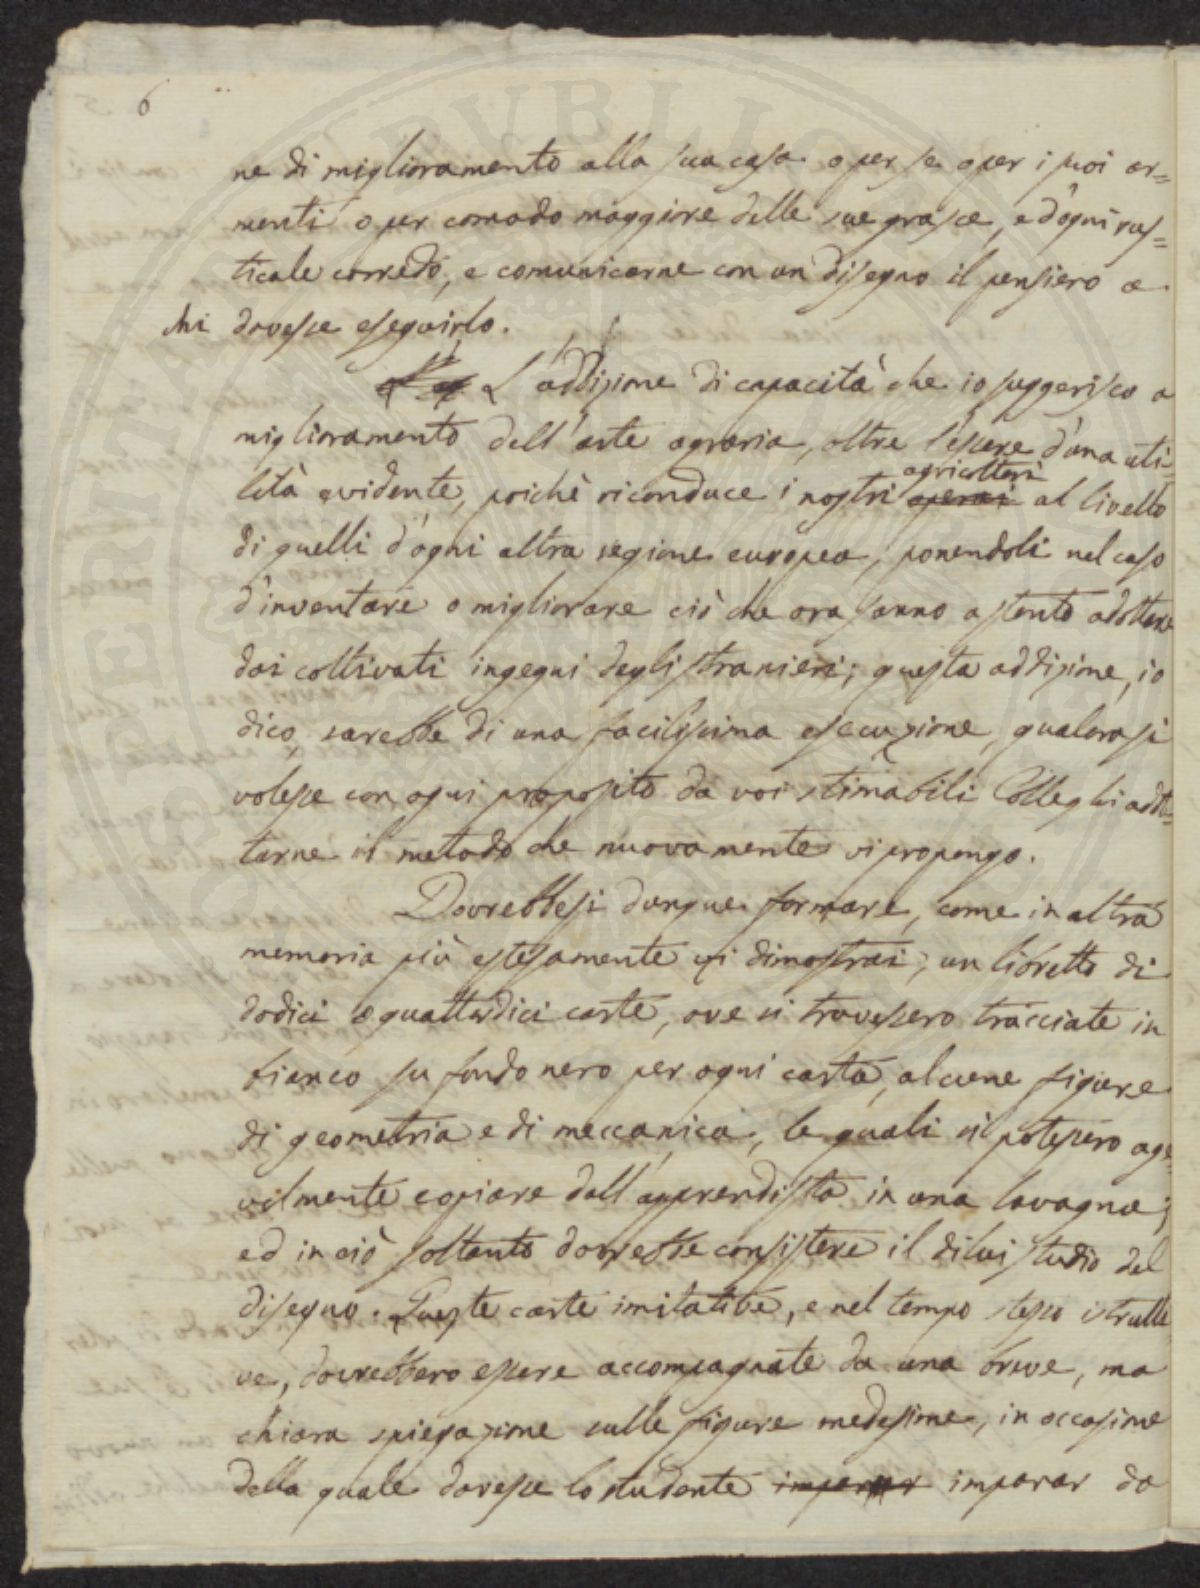 6
ne di miglioramento alla sua casa o per se o per i suoi ar=
menti o per comodo maggiore delle sue grasce, e d'ogni rus=
ticale corredo, e comunicarne con un disegno il pensiero a
chi dovesse eseguirlo.
L'addizione di capacità che io suggerisco a
miglioramento dell'arte agraria, oltre l'essere d'una uti=
agricoltori
lità evidente, poichè riconduce i nostri operai al livello
di quelli d'ogni altra regione europea, ponendoli nel caso
d'inventare o migliorare ciò che ora sanno a stento adottare
dai coltivati ingegni degli stranieri; questa addizione, io
dico, sarebbe di una facilissima esecuzione, qualora si
volesse con ogni proposito da voi stimabili Colleghi adot=
tarne il metodo che nuovamente vi propongo.
Dovrebbesi dunque formare, come in altra
memoria più estesamente vi dimostrai, un libretto di
dodici o quattordici carte, ove si trovassero tracciate in
bianco su fondo nero per ogni carta, alcune figure
di geometria e di meccanica, le quali si potessero age=
volmente copiare dall'apprendista in una lavagna;
ed in ciò soltanto dovrebbe consistere il di lui studio del
disegno. Queste carte imitative, e nel tempo stesso istrutti
ve, dovrebbero essere accompagnate da una breve, ma
chiara spiegazione sulle figure medesime, in occasione
della quale dovesse lo studente imparar imparar da